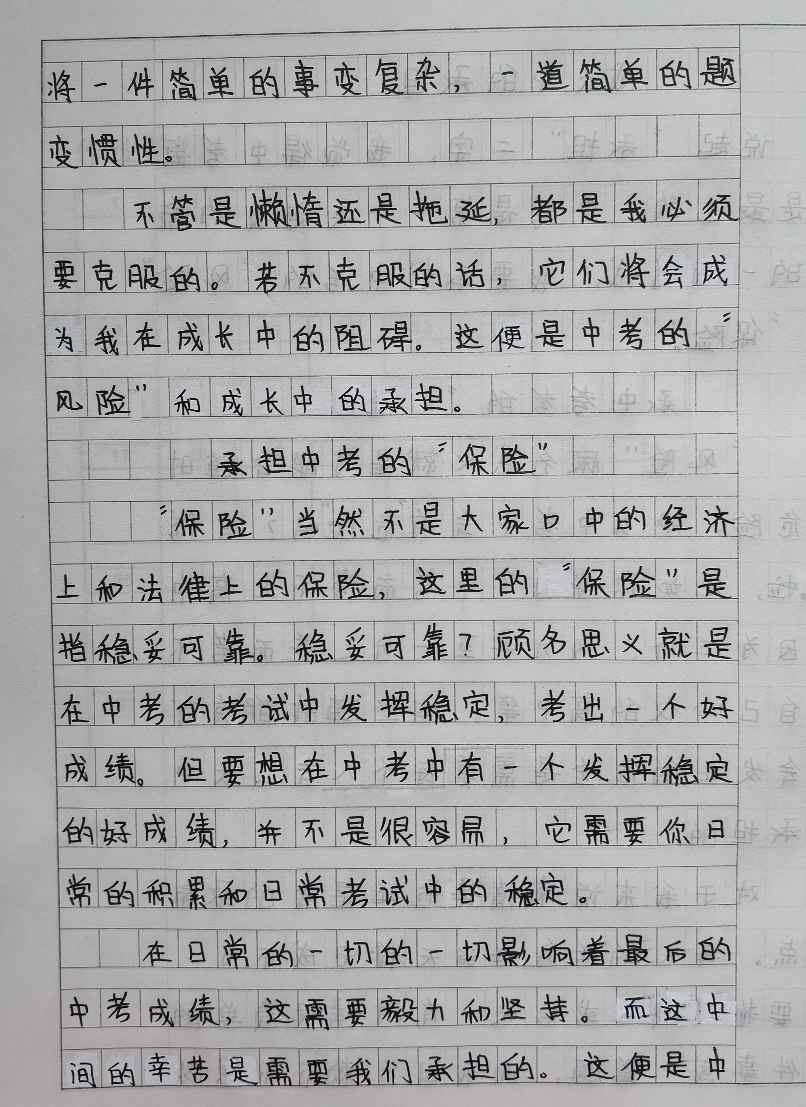 将一件简单的事变复杂，一道简单的题
变惯性。
不管是懒惰还是拖延，都是我必须
要克服的。若不克服的话，它们将会成
为我在成长中的阻碍。这便是中考的“
风险”和成长中的承担。
承担中考的“保险”
“保险”当然不是大家口中的经济
上和法律上的保险，这里的“保险”是
指稳妥可靠。稳妥可靠？顾名思义就是
在中考的考试中发挥稳定，考出一个好
成绩。但要想在中考中有一个发挥稳定
的好成绩，并不是很容易，它需要你日
常的积累和日常考试中的稳定。
在日常的一切的一切影响着最后的
中考成绩，这需要毅力和坚持。而这中
间的幸苦是需要我们承担的。这便是中